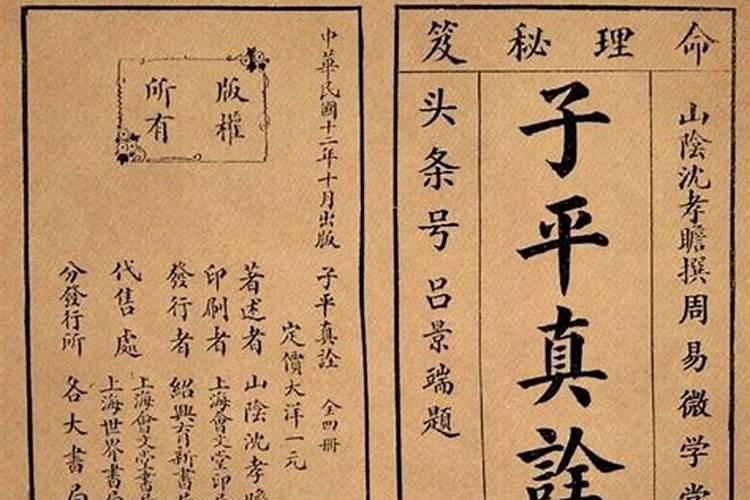 命理秘笈
山陰沈孝瞻撰周易微学堂
子平真詮
头条号吕景端題
版權
所有
中華民國十二年十月出版
子平真詮 全四冊
定價大洋一元
著述者 山陰沈孝瞻
印刷者 上海會文堂印
發行者 紹興育新書
代售處 上海會文堂書局
上海世界書局
分發行所 各大書局